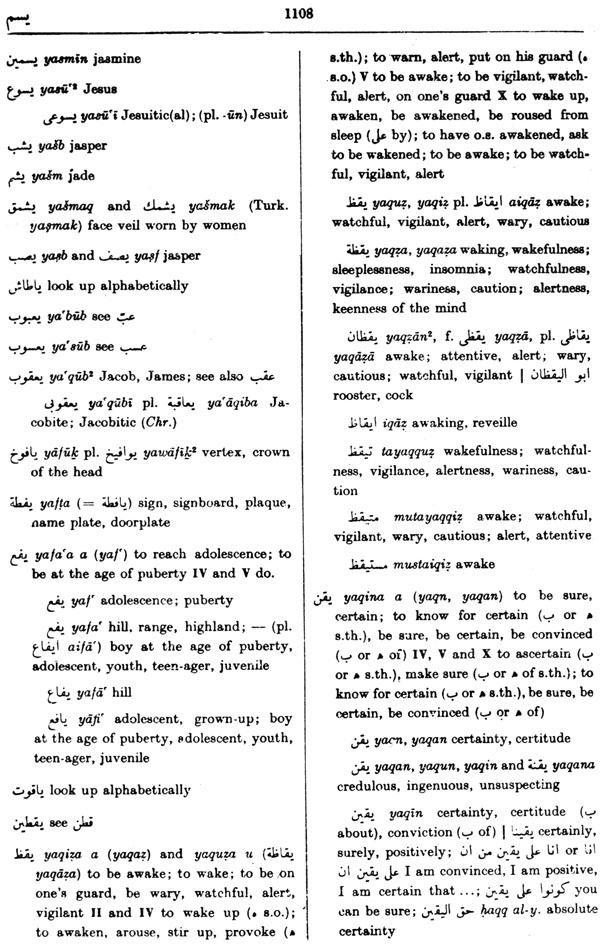 يسم 1108
يسمين yasmīn jasmine
يسوع yasū‘² Jesus
يسوعى yasū‘ī Jesuitic(al); (pl. -ūn) Jesuit
يشب yašb jasper
يشم yašm jade
يشمق yašmaq and يشمك yašmak (Turk.
yaşmak) face veil worn by women
يصب yaṣb and يصف yaṣf jasper
ياطاش look up alphabetically
يعبوب ya‘būb see عبّ
يعسوب ya‘sūb see عسب
يعقوب ya‘qūb² Jacob, James; see also عقب
يعقوبى ya‘qūbī pl. يعاقبة ya‘āqiba Ja-
cobite; Jacobitic (Chr.)
يافوخ yāfūḵ pl. يوافيخ yawāfīḵ² vertex, crown
of the head
يفطة yafṭa (= يافطة) sign, signboard, plaque,
name plate, doorplate
يفع yafa‘a a (yaf‘) to reach adolescence; to
be at the age of puberty IV and V do.
يفع yaf‘ adolescence; puberty
يفع yafa‘ hill, range, highland; — (pl.
ايفاع aifā‘) boy at the age of puberty,
adolescent, youth, teen-ager, juvenile
يفاع yafā‘ hill
يافع yāfi‘ adolescent, grown-up; boy
at the age of puberty, adolescent, youth,
teen-ager, juvenile
ياقوت look up alphabetically
يقطين see قطن
يقظ yaqiẓa a (yaqaẓ) and yaquẓa u (يقاظة
yaqāẓa) to be awake; to wake; to be on
one's guard, be wary, watchful, alert,
vigilant II and IV to wake up (ه s.o.);
to awaken, arouse, stir up, provoke (ه
s.th.); to warn, alert, put on his guard (ه
s.o.) V to be awake; to be vigilant, watch-
ful, alert, on one's guard X to wake up,
awaken, be awakened, be roused from
sleep (على by); to have o.s. awakened, ask
to be wakened; to be awake; to be watch-
ful, vigilant, alert
يقظ yaquẓ, yaqiẓ pl. ايقاظ aiqāẓ awake;
watchful, vigilant, alert, wary, cautious
يقظة yaqẓa, yaqaẓa waking, wakefulness;
sleeplessness, insomnia; watchfulness,
vigilance; wariness, caution; alertness,
keenness of the mind
يقظان yaqẓān², f. يقظى yaqẓā, pl. يقاظى
yaqāẓā awake; attentive, alert; wary,
cautious; watchful, vigilant | ابو اليقظان
rooster, cock
ايقاظ īqāẓ awaking, reveille
تيقظ tayaqquẓ wakefulness; watchful-
ness, vigilance, alertness, wariness, cau-
tion
متيقظ mutayaqqiẓ awake; watchful,
vigilant, wary, cautious; alert, attentive
مستيقظ mustaiqiẓ awake
يقن yaqina a (yaqn, yaqan) to be sure,
certain; to know for certain (ب or ه
s.th.), be sure, be certain, be convinced
(ب or ه of) IV, V and X to ascertain (ب
or ه s.th.), make sure (ب or ه of s.th.); to
know for certain (ب or ه s.th.), be sure, be
certain, be convinced (ب or ه of)
يقن yaqn, yaqan certainty, certitude
يقن yaqan, yaqun, yaqin and يقنة yaqana
credulous, ingenuous, unsuspecting
يقين yaqīn certainty, certitude (ب
about), conviction (ب of) | يقينا certainly,
surely, positively; انا على يقين من ان or انا
على يقين ان I am convinced, I am positive,
I am certain that ...; كونوا على يقين you
can be sure; حق اليقين ḥaqq al-y. absolute
certainty